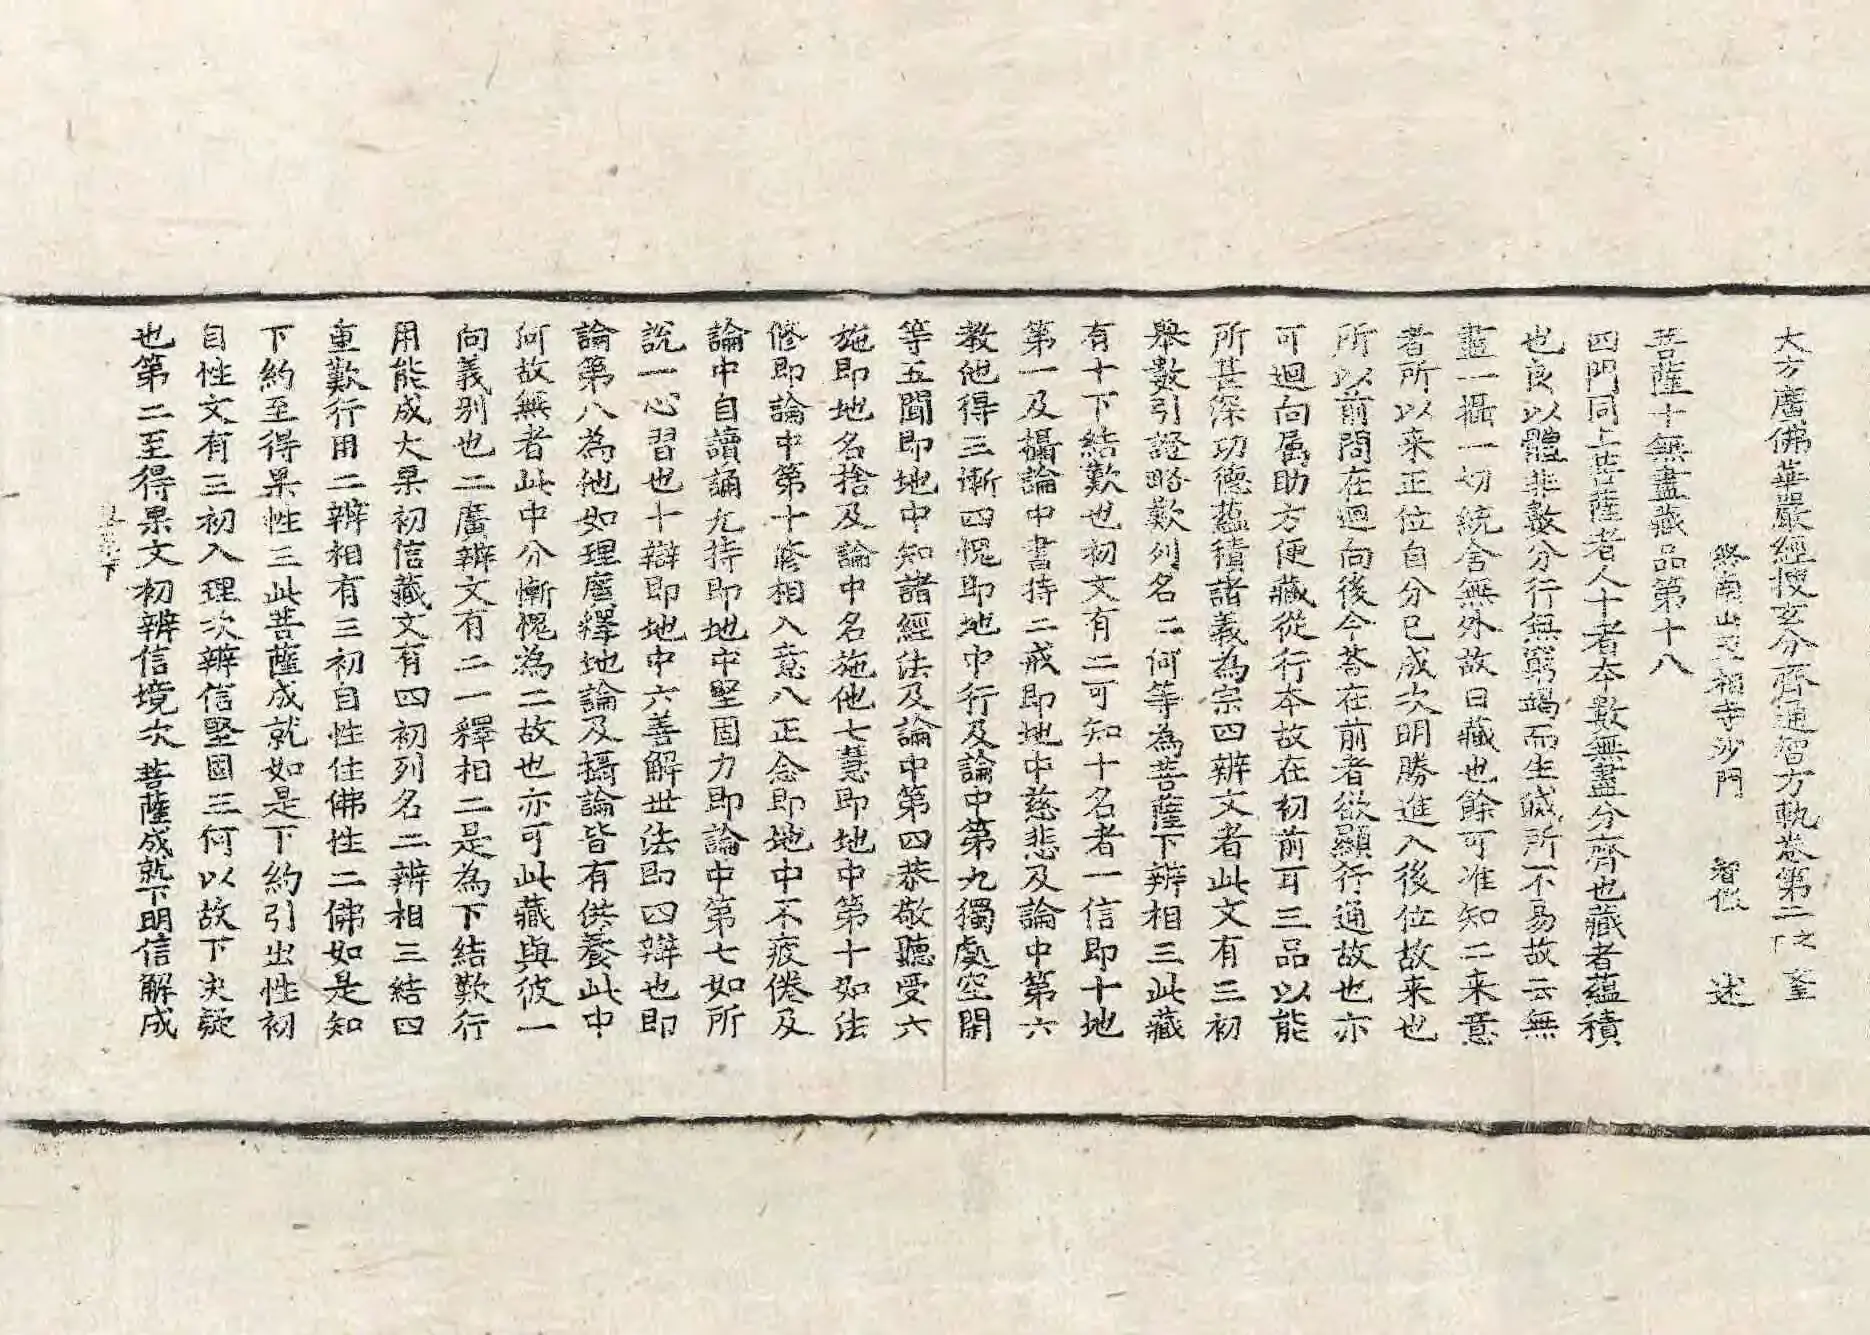 大方廣佛華嚴經搜玄分齊通智方軌卷第二之下 𡉏
終南山至相寺沙門 智儼 述
菩薩十無盡藏品第十八
四門同上菩薩者人十者本數無盡分齊也藏者蘊積
也良以體非數分行無窮竭而生滅所不易故云無
盡一攝一切統含無外故曰藏也餘可准知二来意
者所以来正位自分已成次明勝進入後位故来也
所以前問在迴向後今荅在前者欲顯行通故也亦
可迴向属助方便藏從行本故在初前耳三品以能
所甚深功德蘊積諸義為宗四辨文者此文有三初
舉數引證略歎列名二何等為菩薩下辨相三此藏
有十下結歎也初文有二可知十名者一信即十地
第一及攝論中書持二戒即地中慈悲及論中第六
教他得三慚四愧即地中行及論中第九獨處空閑
等五聞即地中知諸經法及論中第四恭敬聽受六
施即地名捨及論中名施他七慧即地中第十如法
修即論中第十修相入意八正念即地中不疲倦及
論中自讀誦九持即地中堅固力即論中第七如所
說一心習也十辯即地中六善解世法即四辯也即
論第八為他如理廣釋地論及攝論皆有供養此中
何故無者此中分慚愧為二故也亦可此藏與彼一
向義別也二廣辨文有二一釋相二是為下結歎行
用能成大果初信藏文有四初列名二辨相三結四
重歎行用二辨相有三初自性住佛性二佛如是知
下約至得果性三此菩薩成就如是下約引出性初
自性文有三初入理次辨信堅固三何以故下決疑
也第二至得果文初辨信境次菩薩成就下明信解成